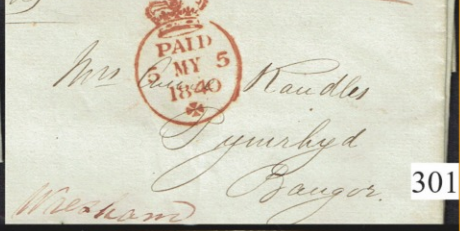 PAID
MY 5
1840
Mrs Randles
Bangor.
Wrexham
301